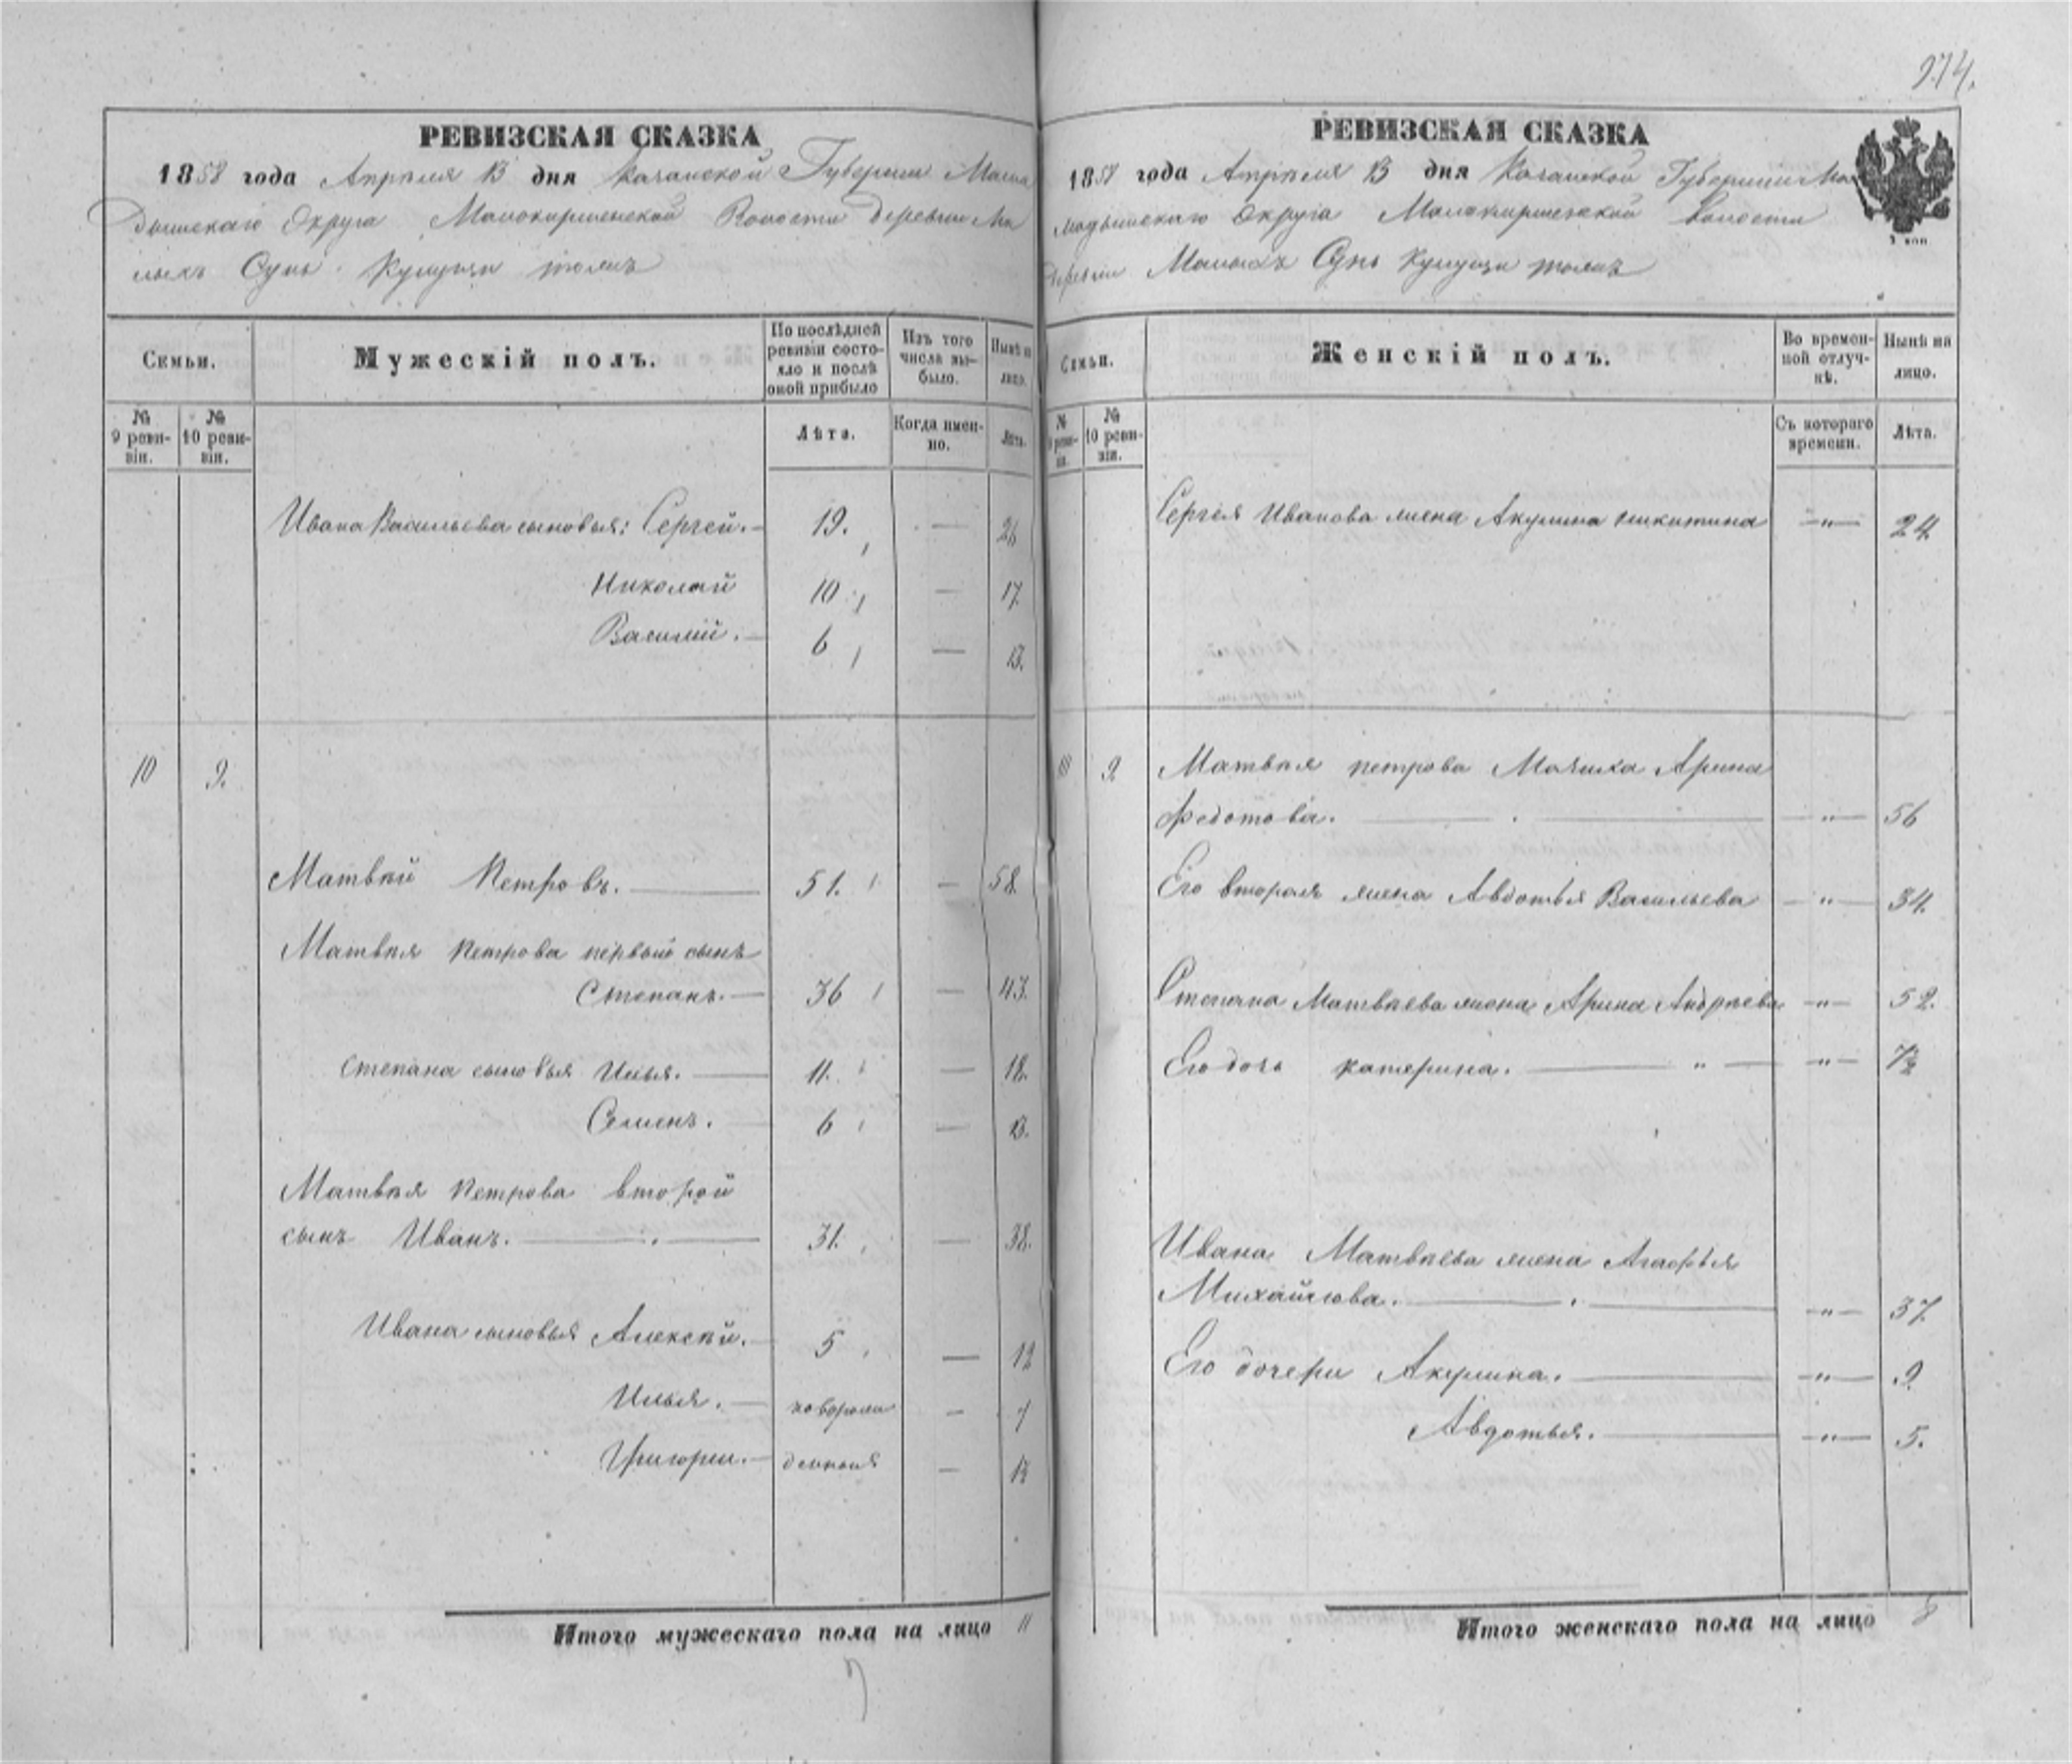 974.
РЕВИЗСКАЯ СКАЗКА
1858 года Апрѣля 13 дня Казанской Губерніи Мама
дышскаго Округа Малокирменской Волости Деревни Ма
лыхъ Сунь
Семьи.
Мужескій полъ.
По послѣдней ревизіи состояло и послѣ оной прибыло
Изъ того числа выбыло.
Нынѣ на лицо.
№ 9 ревизіи.
№ 10 ревизіи.
Лѣта.
Когда именно.
Лѣта.
Ивана Васильева сыновья: Сергей. — 19. — 26
Николай 10 — 17.
Василій. — 6 — 13.
10 9.
Матвѣй Петровъ. — 51. — 58.
Матвѣя Петрова первый сынъ
Степанъ. — 36 — 43.
Степана сыновья Илья. — 11. — 18.
Семенъ. — 6 — 13.
Матвѣя Петрова второй
сынъ Иванъ. — 31. — 38.
Ивана сыновья Алексѣй. — 5 — 12
Илья. — новорож —
Григорій. — денныя —
Итого мужескаго пола на лицо 11
РЕВИЗСКАЯ СКАЗКА
1858 года Апрѣля 13 дня Казанской Губерніи Ма
мадышскаго Округа Малокирменской Волости
Деревни Малыхъ Сунь
2 коп
Семьи.
Женскій полъ.
Во временной отлучкѣ.
Нынѣ на лицо.
№ 9 ревизіи.
№ 10 ревизіи.
Съ котораго времени.
Лѣта.
Сергея Иванова жена Акулина Никитина — „ — 24.
10 9. Матвѣя Петрова Мачиха Арина
Федотова. — „ — 56
Его вторая жена Авдотья Васильева — „ — 34.
Степана Матвѣева жена Арина Андрѣева — „ — 52.
Его дочь Катерина. — „ — „ — 7½
Ивана Матвѣева жена Агафья
Михайлова. — „ — 37.
Его дочери Акулина. — „ — 9.
Авдотья. — „ — 5.
Итого женскаго пола на лицо 8